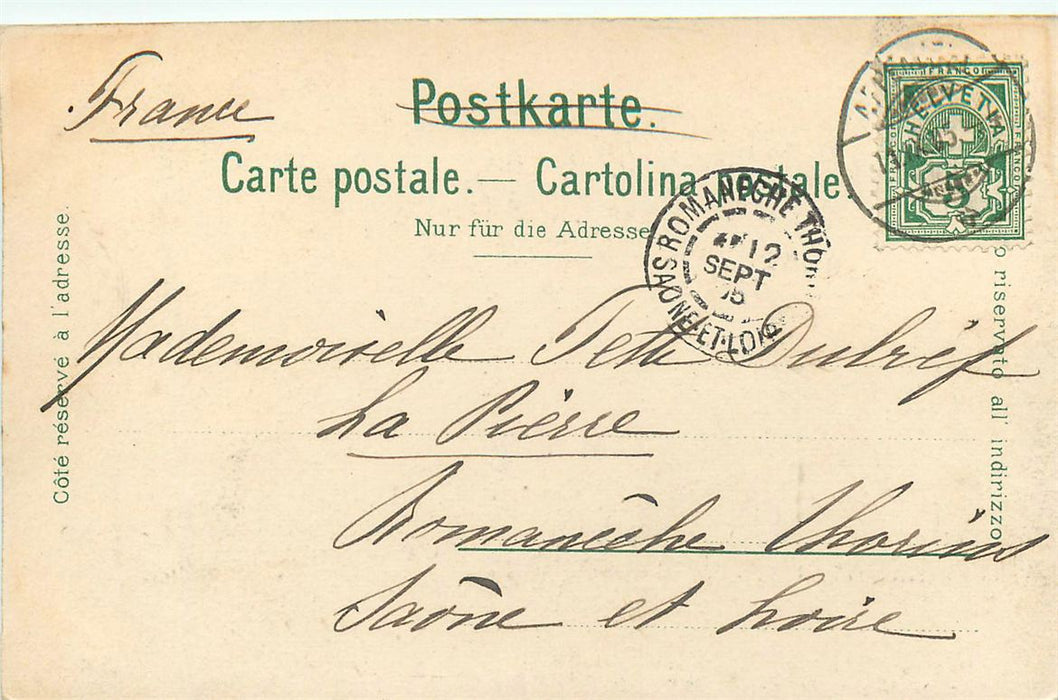 France
Postkarte.
Carte postale.— Cartolina postale
Nur für die Adresse
FRANCO
HELVETIA
FRANCO
5
ROMANÈCHE THOR
12
SEPT
05
SAONE-ET-LOIRE
Côté réservé à l'adresse.
riservato all' indirizzo
Mademoiselle
La Pierre
Romanèche Thorins
Saône et Loire